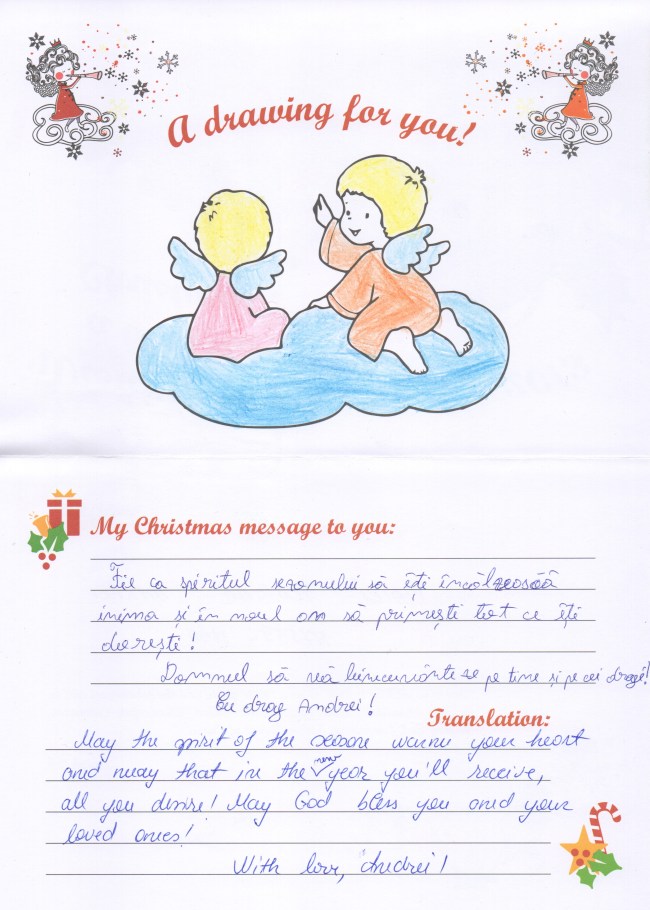 A drawing for you!
My Christmas message to you:
Fie ca spiritul sezonului să îți încălzească
inima și în noul an să primești tot ce îți
dorești!
Domnul să vă binecuvânteze pe tine și pe cei dragi!
Cu drag Andrei!
Translation:
May the spirit of the season warm your heart
and may that in the new year you'll receive,
all you desire! May God bless you and your
loved ones!
With love, Andrei!